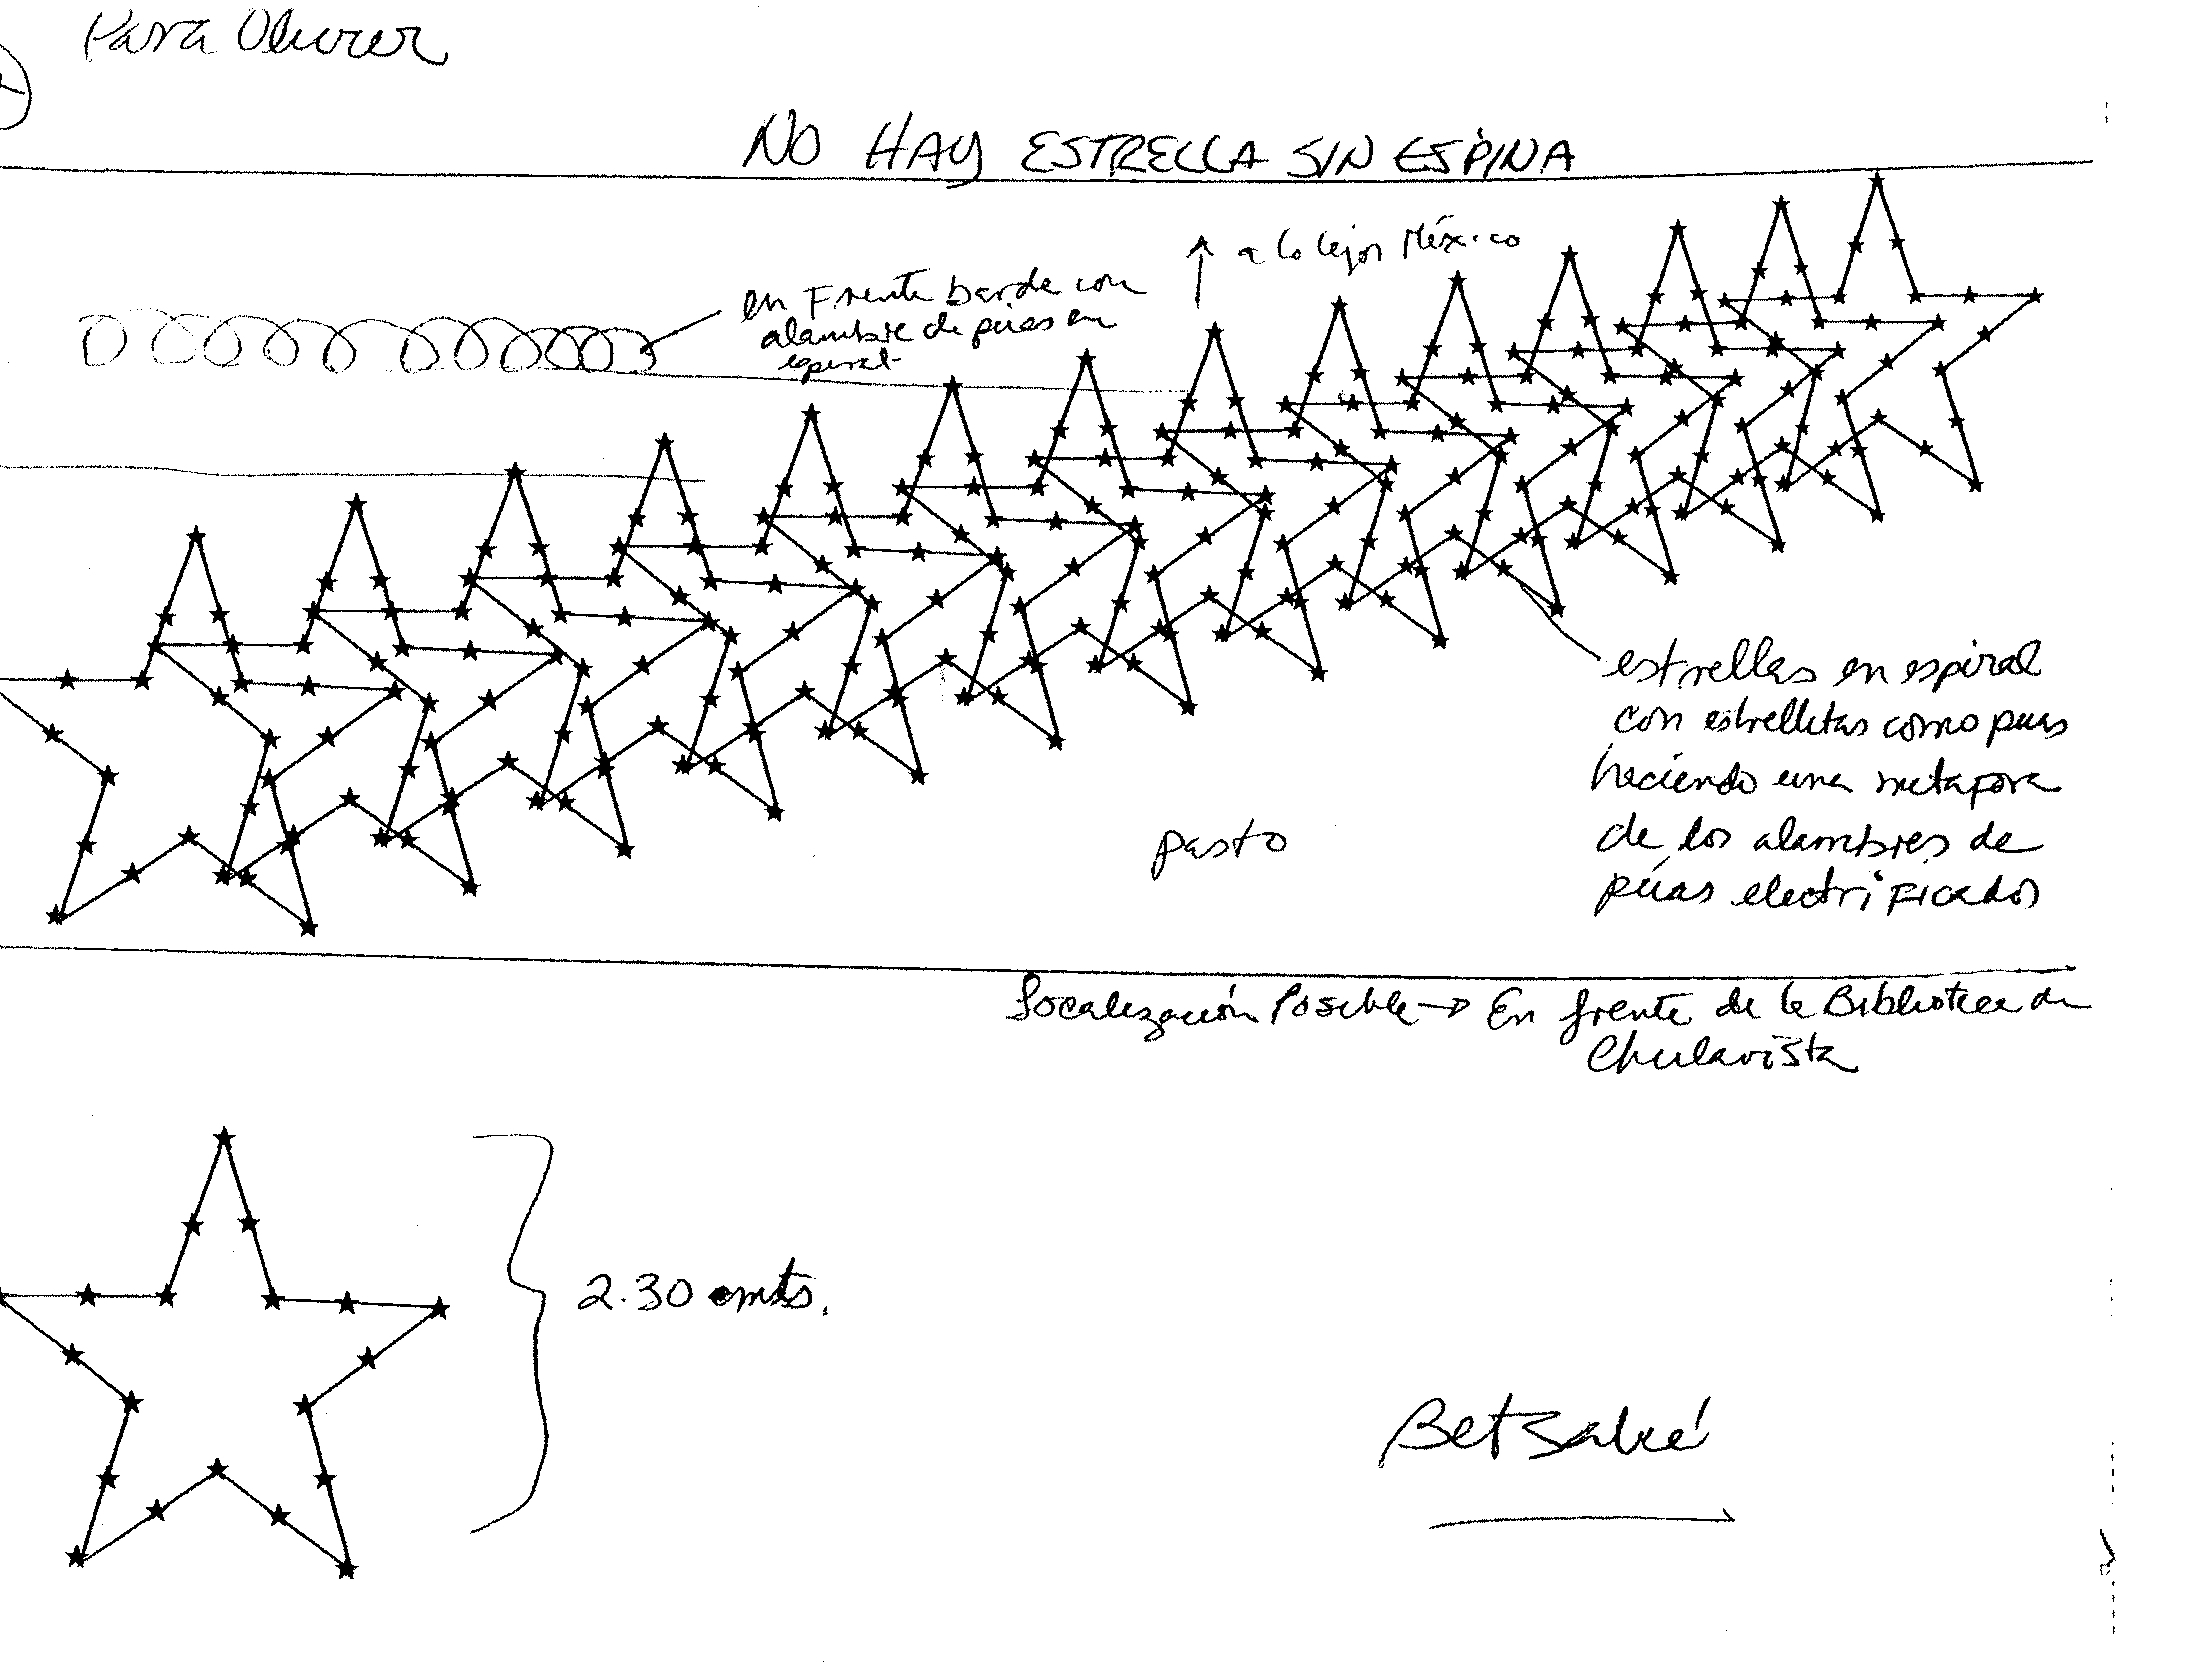 Para Oliver
NO HAY ESTRELLA SIN ESPINA
↑ a lo lejos México
en Frente barda con
alambre de púas en
espiral
estrellas en espiral
con estrellitas como puas
haciendo una metafora
de los alambres de
púas electrificados
pasto
Localización Posible → En frente de la Biblioteca de
Chulavista
2.30 mts.
Betsabeé